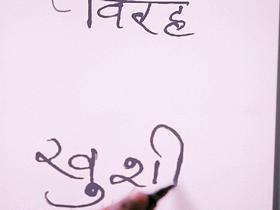 विरह
खुशी